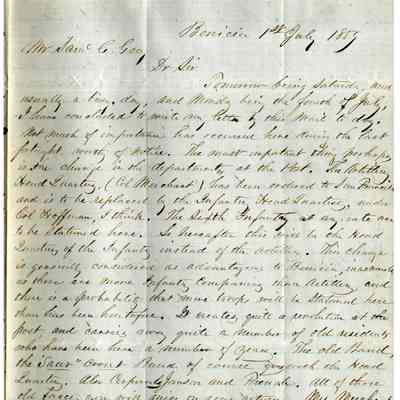 Benicia 1st July 1859
Mr. Saml. C. Gray
Dr Sir
Tomorrow being Saturday and
usually a busy day, and Monday being the fourth of July,
I have concluded to write my letter by this Mail to day.
Not much of importance has occurred here during the last
fortnight worthy of notice. The most important thing perhaps
is the change in the departments at the Post. The Artillery
Head Quarters (Col Merchant) has been ordered to San Francisco
and is to be replaced by the Infantry Head Quarters, under
Col Hoffman, I think. The Sixth Infantry at any rate are
to be stationed here. So hereafter this will be the Head
Quarters of the Infantry instead of the Artillery. This change
is generally considered as advantageous to Benicia, inasmuch
as there are more Infantry Companies than Artillery and
there is a probability that more troops will be stationed here
than has been heretofore. It creates quite a revolution at the
post and carries away quite a number of old residents
who have been here a number of years. The old Band,
the Brass Band of course go with the Head
Quarters. Also and . All of those
old faces you will miss on your return. Mr Merchant